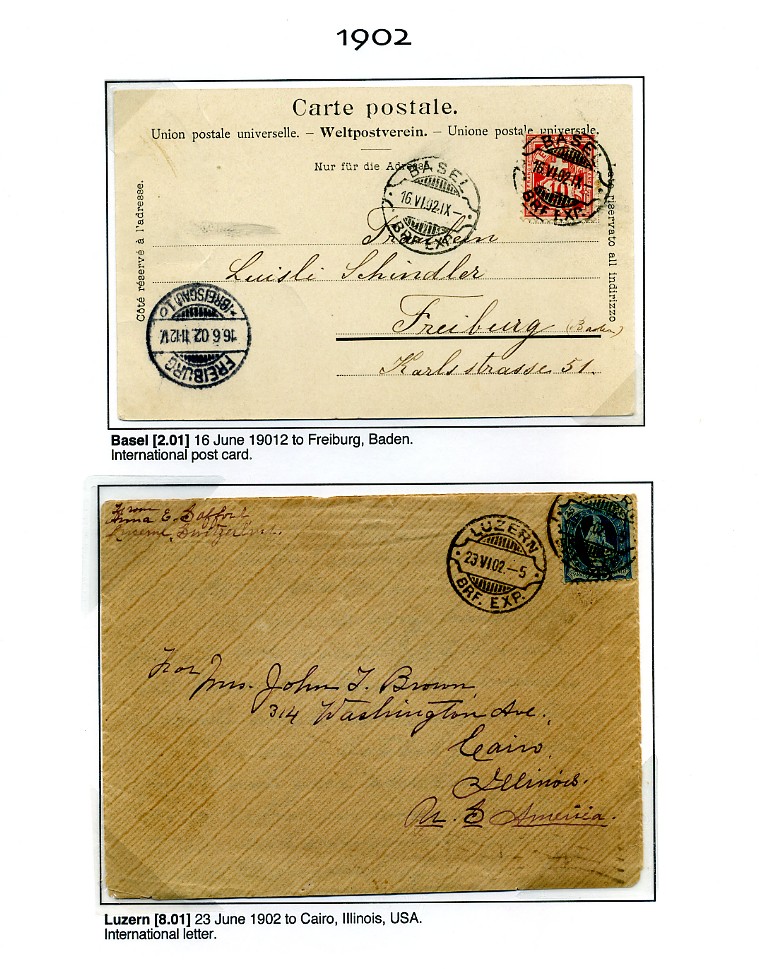 1902
Carte postale.
Union postale universelle. – Weltpostverein. – Unione postale universale.
Nur für die Adresse
Côté réservé à l'adresse.
riservato all indirizzo
BASEL
16.VI.02.IX–
BRF. EXP.
BASEL
16.VI.02.IX–
BRF. EXP.
10
Fräulein
Luisli Schindler
Freiburg (Baden)
Karlsstrasse 51.
FREIBURG
16.6.02.11-12V.
*(BREISGAU)1.o
Basel [2.01] 16 June 19012 to Freiburg, Baden.
International post card.
From
Anna E. Safford
Lucerne, Switzerland.
LUZERN
23.VI.02.–5
BRF. EXP.
25
For Mrs. John T. Brown
314 Washington Ave.,
Cairo,
Illinois.
U. S America.
Luzern [8.01] 23 June 1902 to Cairo, Illinois, USA.
International letter.